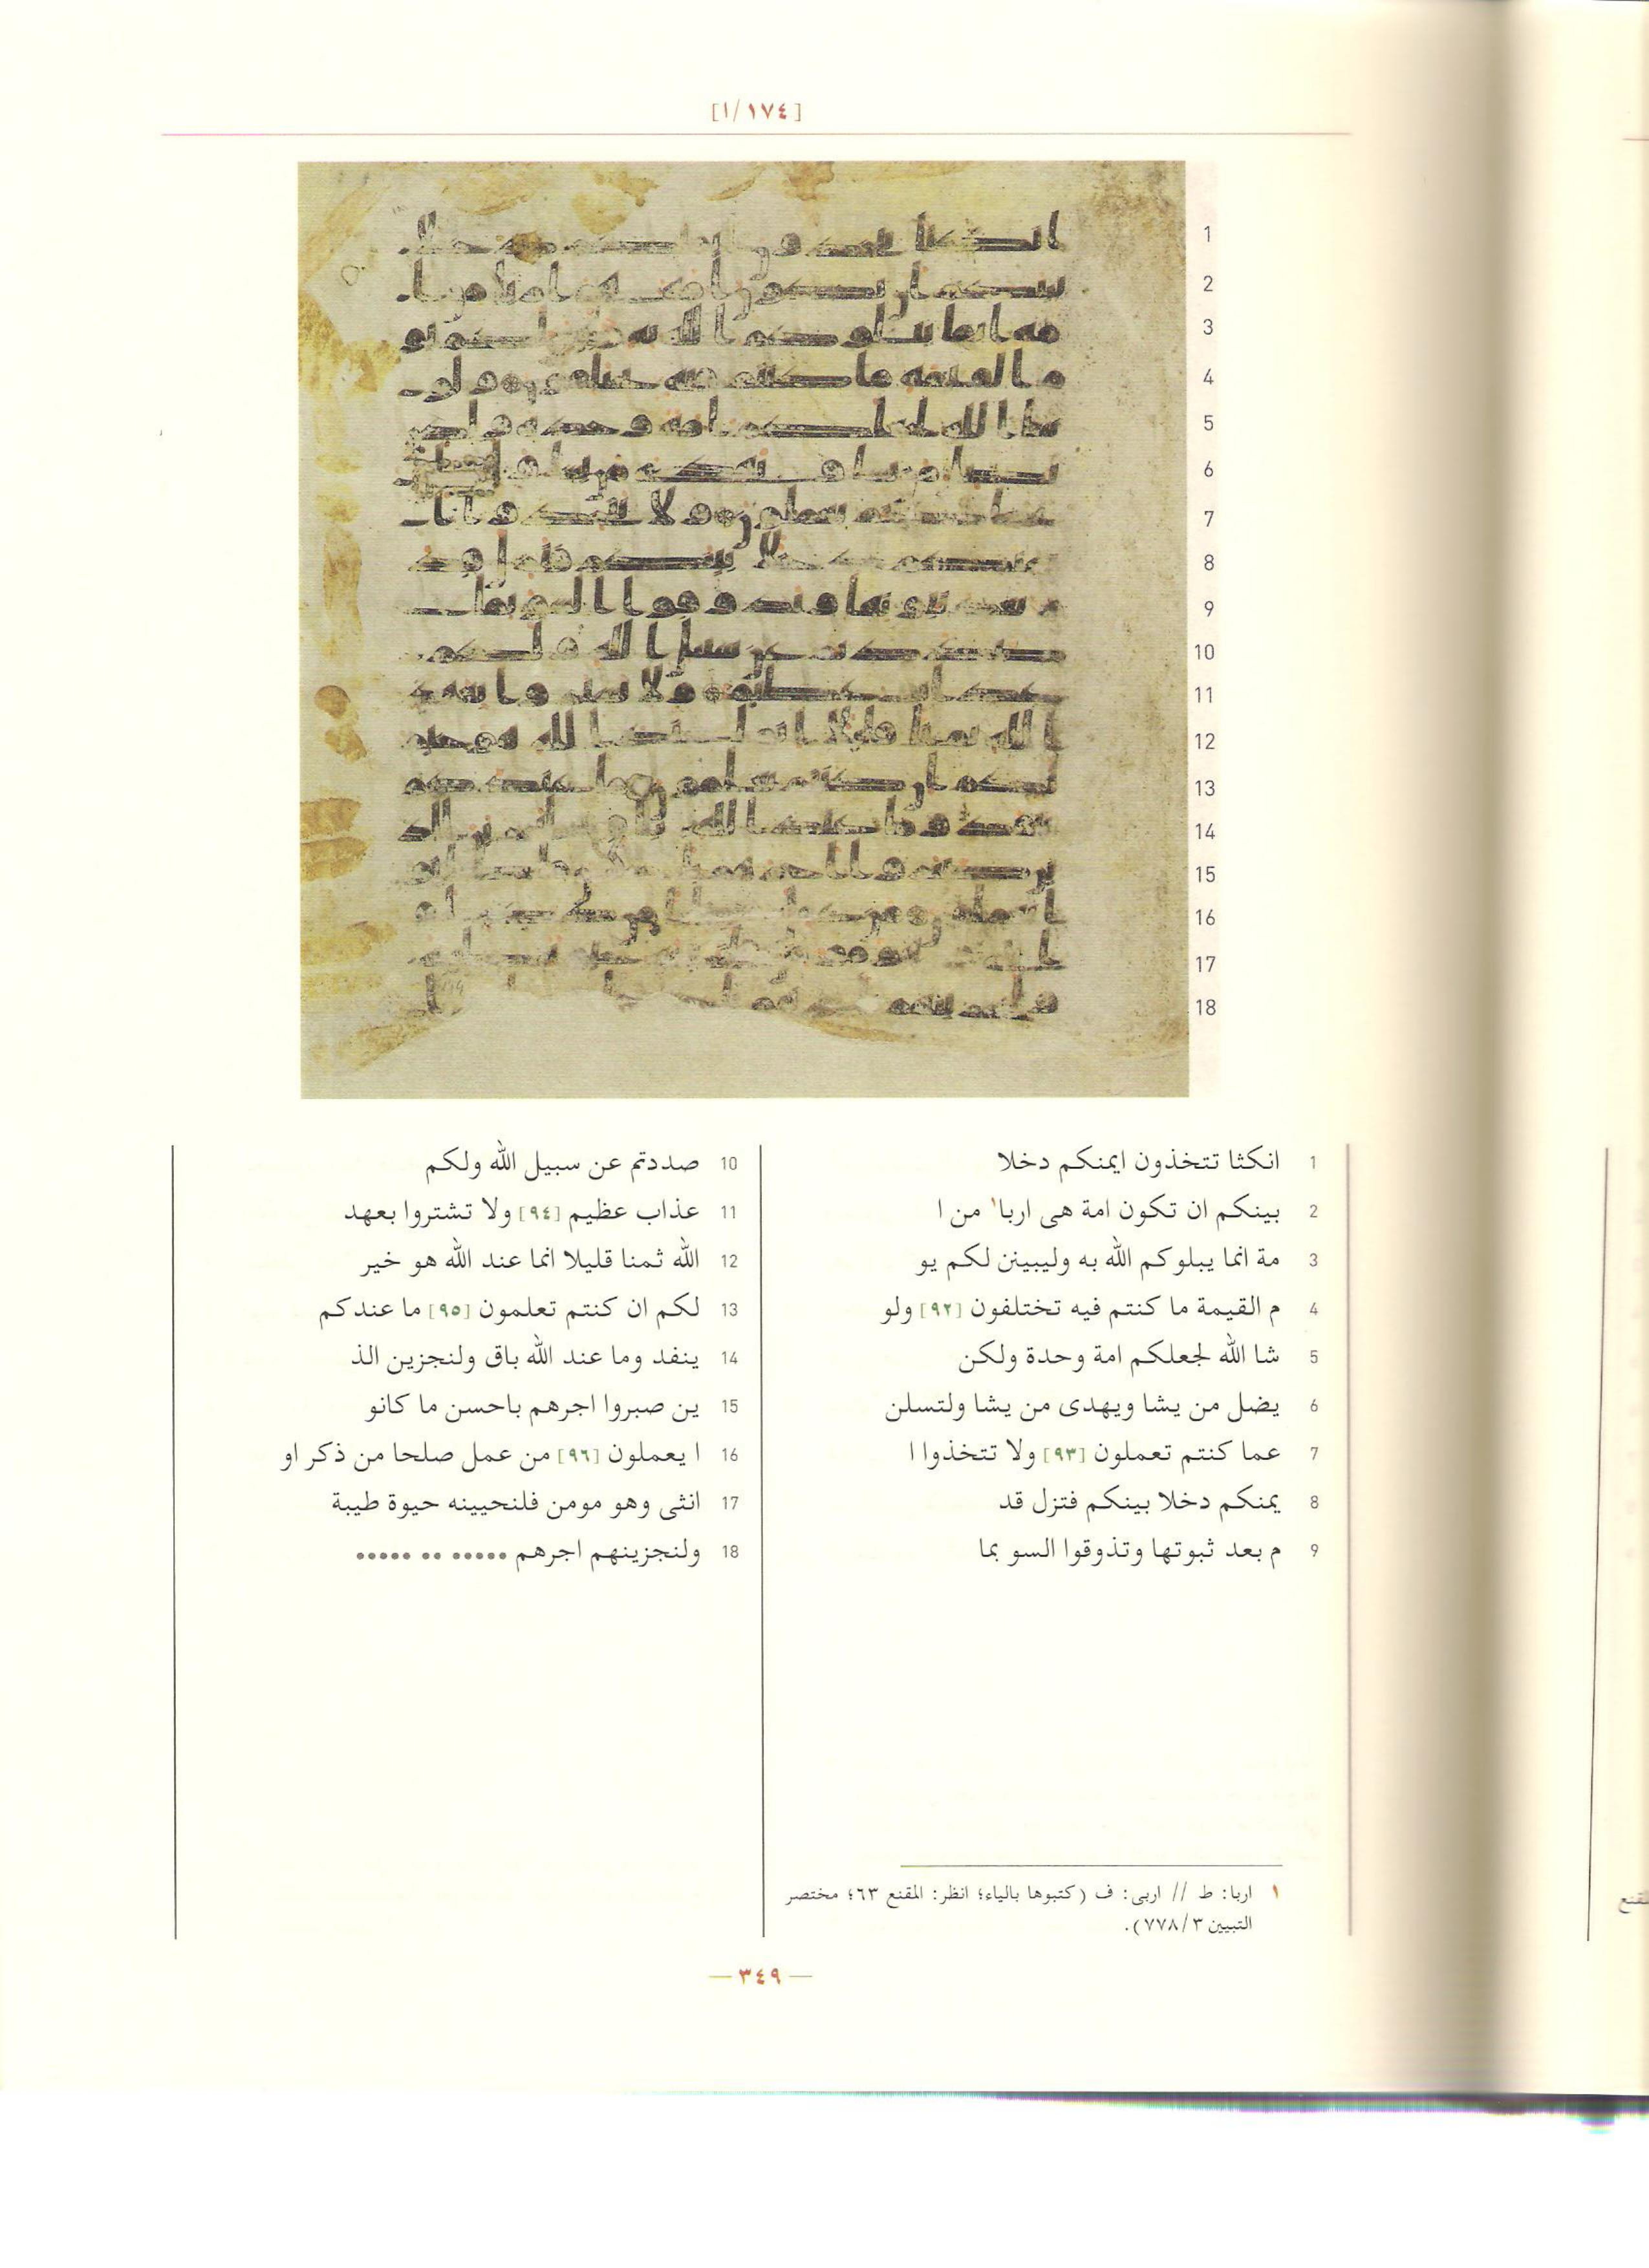 [١/١٧٤]
1
2
3
4
5
6
7
8
9
10
11
12
13
14
15
16
17
18
1 انكثا تتخذون ايمنكم دخلا
2 بينكم ان تكون امة هى اربا١ من ا
3 مة انما يبلوكم الله به وليبينن لكم يو
4 م القيمة ما كنتم فيه تختلفون [٩٢] ولو
5 شا الله لجعلكم امة وحدة ولكن
6 يضل من يشا ويهدى من يشا ولتسلن
7 عما كنتم تعملون [٩٣] ولا تتخذوا ا
8 يمنكم دخلا بينكم فتزل قد
9 م بعد ثبوتها وتذوقوا السو بما
10 صددتم عن سبيل الله ولكم
11 عذاب عظيم [٩٤] ولا تشتروا بعهد
12 الله ثمنا قليلا انما عند الله هو خير
13 لكم ان كنتم تعلمون [٩٥] ما عندكم
14 ينفد وما عند الله باق ولنجزين الذ
15 ين صبروا اجرهم باحسن ما كانو
16 ا يعملون [٩٦] من عمل صلحا من ذكر او
17 انثى وهو مومن فلنحيينه حيوة طيبة
18 ولنجزينهم اجرهم ••••• •• •••••
١ اربا: ط // اربى: ف (كتبوها بالياء؛ انظر: المقنع ٦٣؛ مختصر
التبيين ٧٧٨/٣).
— ٣٤٩ —